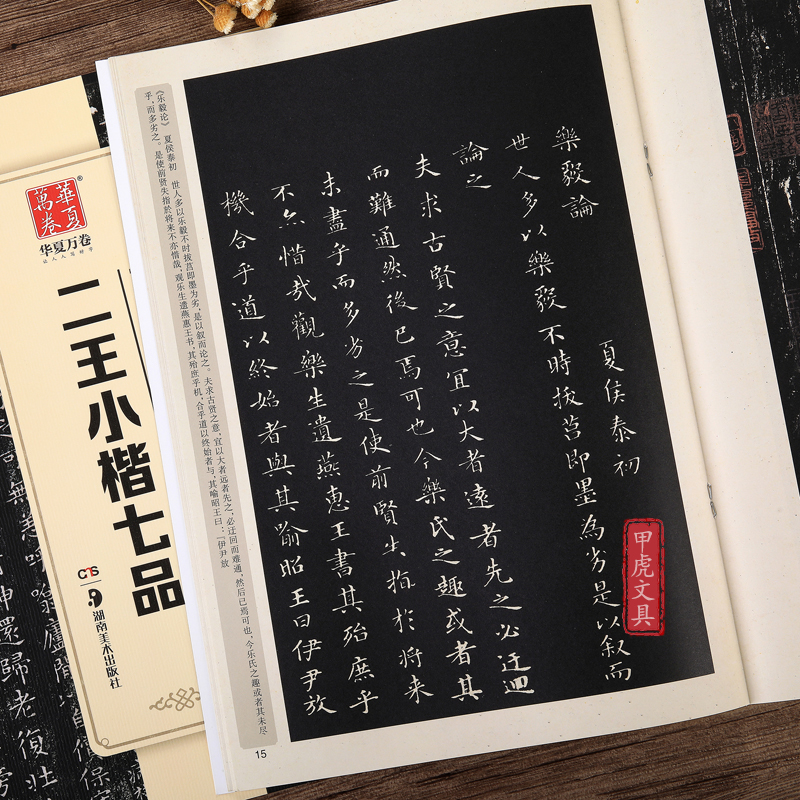 樂毅論
夏侯泰初
世人多以樂毅不時拔莒即墨為劣是以叙而
論之
夫求古賢之意宜以大者遠者先之必迂迴
而難通然後已焉可也今樂氏之趣或者其
未盡乎而多劣之是使前賢失指於将来
不亦惜哉觀樂生遺燕惠王書其殆庶乎
機合乎道以終始者與其喻昭王曰伊尹放
《乐毅论》 夏侯泰初 世人多以乐毅不时拔莒即墨为劣，是以叙而论之。夫求古贤之意，宜以大者远者先之，必迂回而难通，然后已焉可也，今乐氏之趣或者其未尽
乎，而多劣之。是使前贤失指於将来不亦惜哉，观乐生遗燕惠王书，其殆庶乎机，合乎道以终始者与，其喻昭王曰：“伊尹放
15
華夏
萬卷
®
华夏万卷
让人人写好字
二王小楷七品
湖南美术出版社
甲虎文具
神還歸老復壯